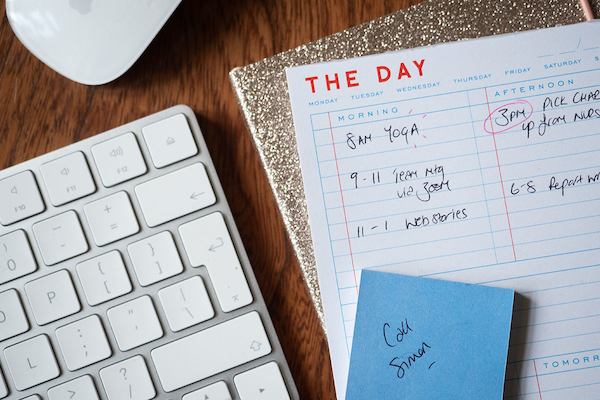 THE DAY
MONDAY TUESDAY WEDNESDAY THURSDAY FRIDAY SATURDAY
MORNING
8AM YOGA
9-11 Team Mtg
via Zoom
11-1 Web stories
AFTERNOON
3PM PICK CHAR
up from Nurs
6-8 Report wri
TOMORR
Call
Simon
F10
F11
F12
+
=
-
)
0
P
{
[
}
]
L
:
;
"
'
|
\
?
/
>